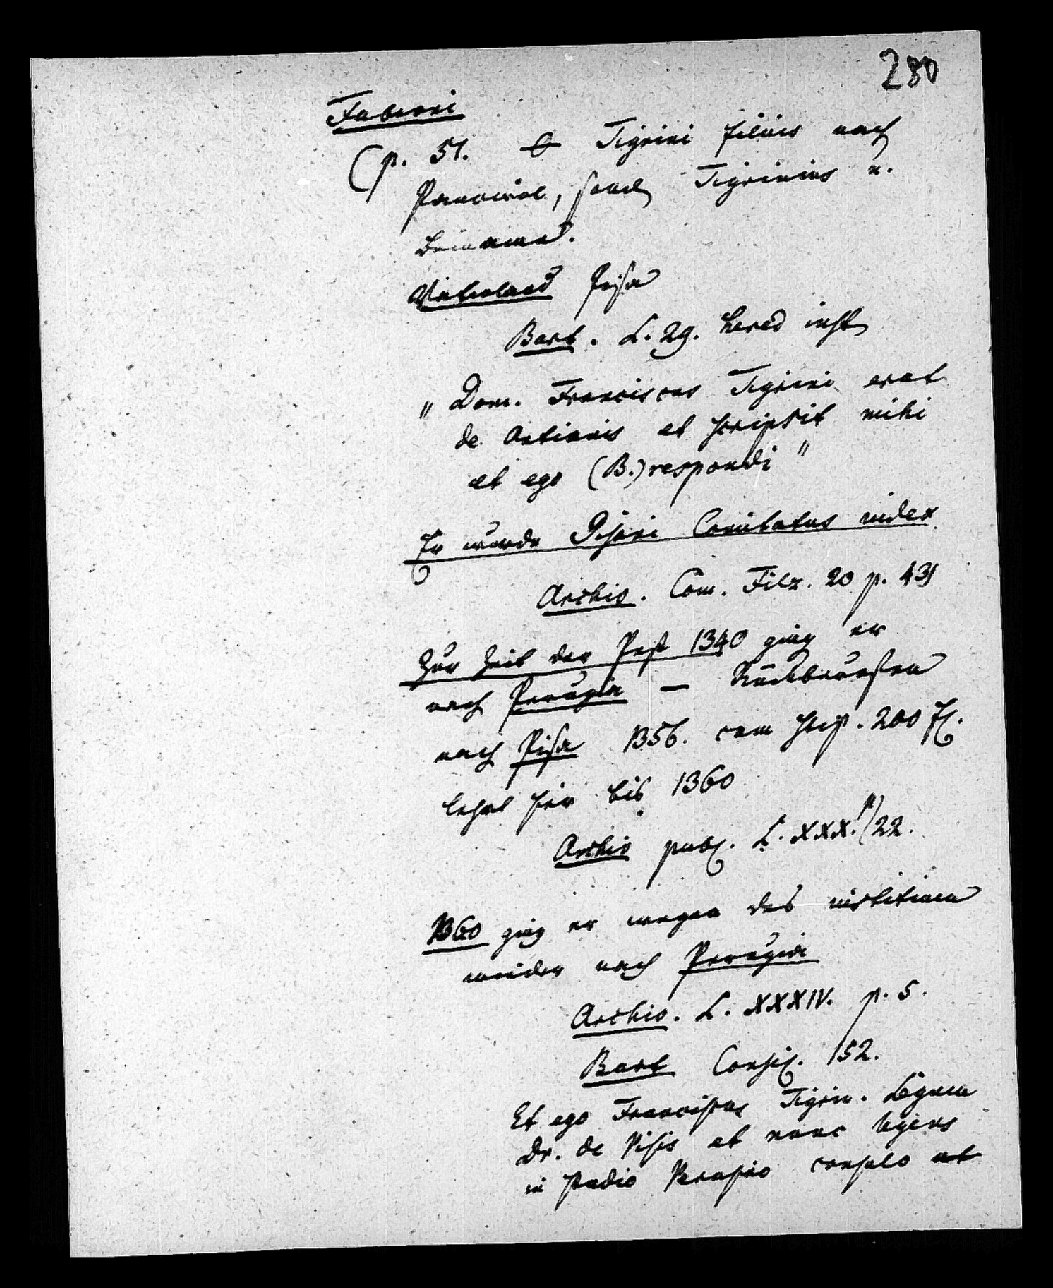 280
Fabroni
(p. 51. Tigrini filius nach
Pancirol, Tigrinius u.
Beiname.
Vaterland Pisa
Bart. L. 29. hered inst
„Dom. Franciscus Tigrini erat
de Antianis et scripsit mihi
et ego (B.) respondi"
Er wurde Pisani Comitatus iudex
Archiv. Com. Filz. 20 p. 431
Zur Zeit der Pest 1340 ging er
nach Perugia — Rückberufen
nach Pisa 1356. cum stip. 200 fl.
lehrt hier bis 1360
Archiv publ. L. XXX. 22.
1360 ging er wegen des
wieder nach Perugia
Archiv. L. XXXIV. p. 5.
Bart Consil. 152.
Et ego Franciscus Tigrin. Legum
Dr. de Pisis et nunc legens
in studio Perusino consulo